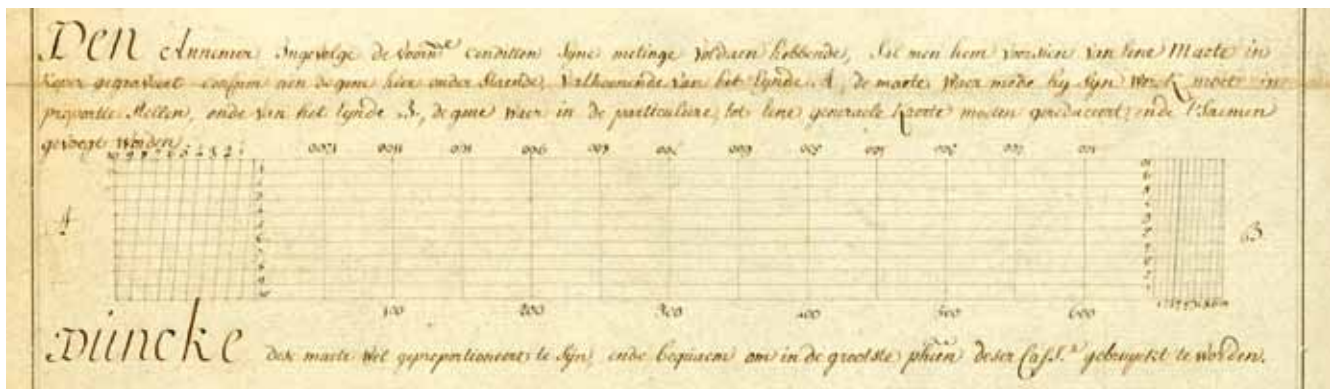 Den Annemer Ingevolge de voorn.e conditien Syne metinge Voldaen hebbende, Sal men hem voorsien van eene Maete in
koper gegraveert conform aen de gene hier onder staende, Valkomende van het Eynde A, de maete waer mede hy Syn Werck moet in
proportie stellen, ende van het Eynde B, de gene waer in de particuliere, tot eene generaele kaerte moeten gereduceert, ende t'Saemen
gevoegt worden
10 9 8 7 6 5 4 3 2 1 1200 1100 1000 900 800 700 600 500 400 300 200 100
A B
100 200 300 400 500 600
Duncke dese maete wel geproportioneert te Syn, ende bequaem om in de grootste deser gebruyckt te worden.